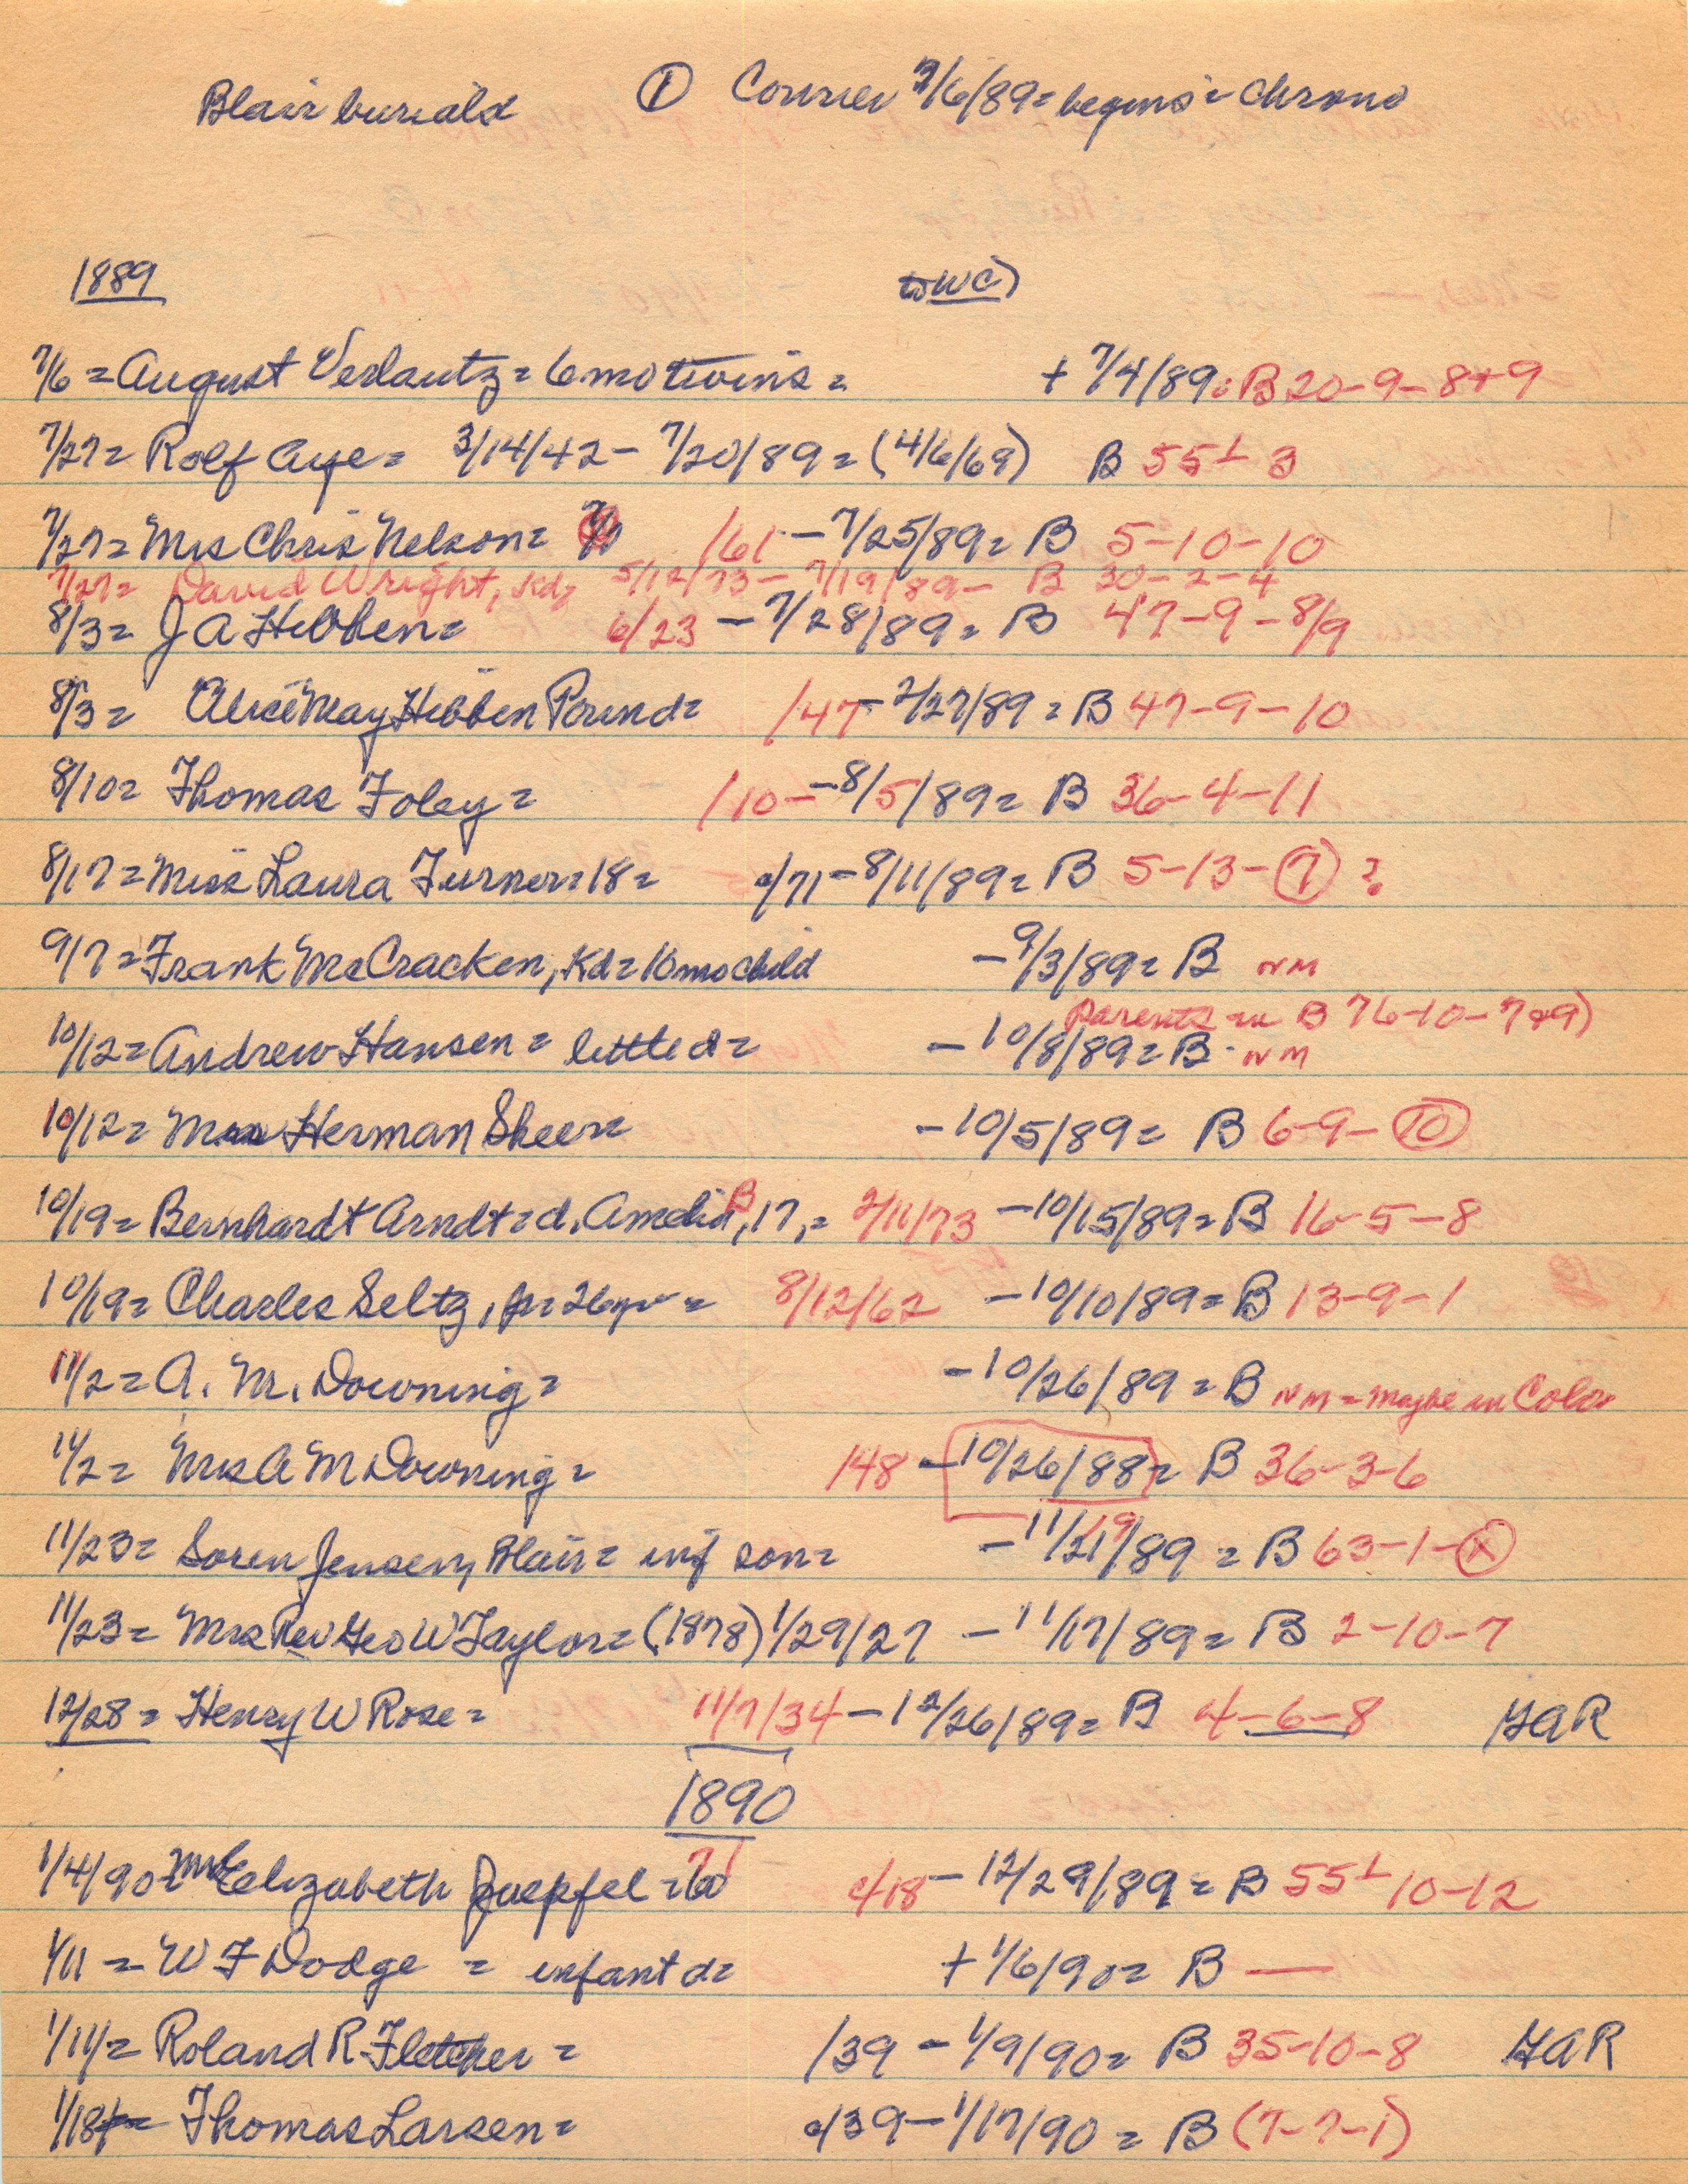 Blair burials ① Courier 7/6/89 = begins = chrono
1889 to WC)
7/6 = August Verlautz = 6 mo twins = + 7/4/89 = B 20-9-8+9
7/27 = Rolf Aye = 3/14/42 - 7/20/89 = (4/6/69) B 55½ 3
7/27 = Mrs Chris Nelson = /61 - 7/25/89 = B 5-10-10
7/27 = David Wright, Kd, 5/12/73 - 7/19/89 - B 30-2-4
8/3 = J A Hebben = 6/23 - 7/28/89 = B 47-9-8/9
8/3 = Alice May Hebben Pound = /47 - 7/27/89 = B 47-9-10
8/10 = Thomas Foley = /10 - 8/5/89 = B 36-4-11
8/17 = Miss Laura Turner = 18 = c/71 - 8/11/89 = B 5-13-⑦ ?
9/7 = Frank McCracken, Kd = 16 mo child - 9/3/89 = B NM
Parents in B 76-10-7+9)
10/12 = Andrew Hansen = little d = - 10/8/89 = B - NM
10/12 = Mrs Herman Sheer = - 10/5/89 = B 6-9-⑩
10/19 = Bernhardt Arndt = d. Amelia B, 17, = 2/11/73 - 10/15/89 = B 16-5-8
10/19 = Charles Seltz, jr = 26 yr = 8/12/62 - 10/10/89 = B 13-9-1
11/2 = A. M. Downing = - 10/26/89 = B NM = maybe in Colo
11/2 = Mrs A M Downing = /48 - 10/26/88 = B 36-3-6
11/23 = Soren Jensen, Blair = inf son = - 11/21/89 = B 63-1-Ⓧ
19
11/23 = Mrs Rev Geo W Taylor = (1878) 1/29/27 - 11/17/89 = B 2-10-7
12/28 = Henry W Rose = 11/7/34 - 12/26/89 = B 4-6-8 GAR
1890
1/4/90 = Mrs Elizabeth Zuepfel = 71 c/18 - 12/29/89 = B 55½ 10-12
1/11 = W F Dodge = infant d = + 1/6/90 = B —
1/11 = Roland R Fletcher = /39 - 1/9/90 = B 35-10-8 GAR
1/18 = Thomas Larsen = c/39 - 1/17/90 = B (7-7-1)